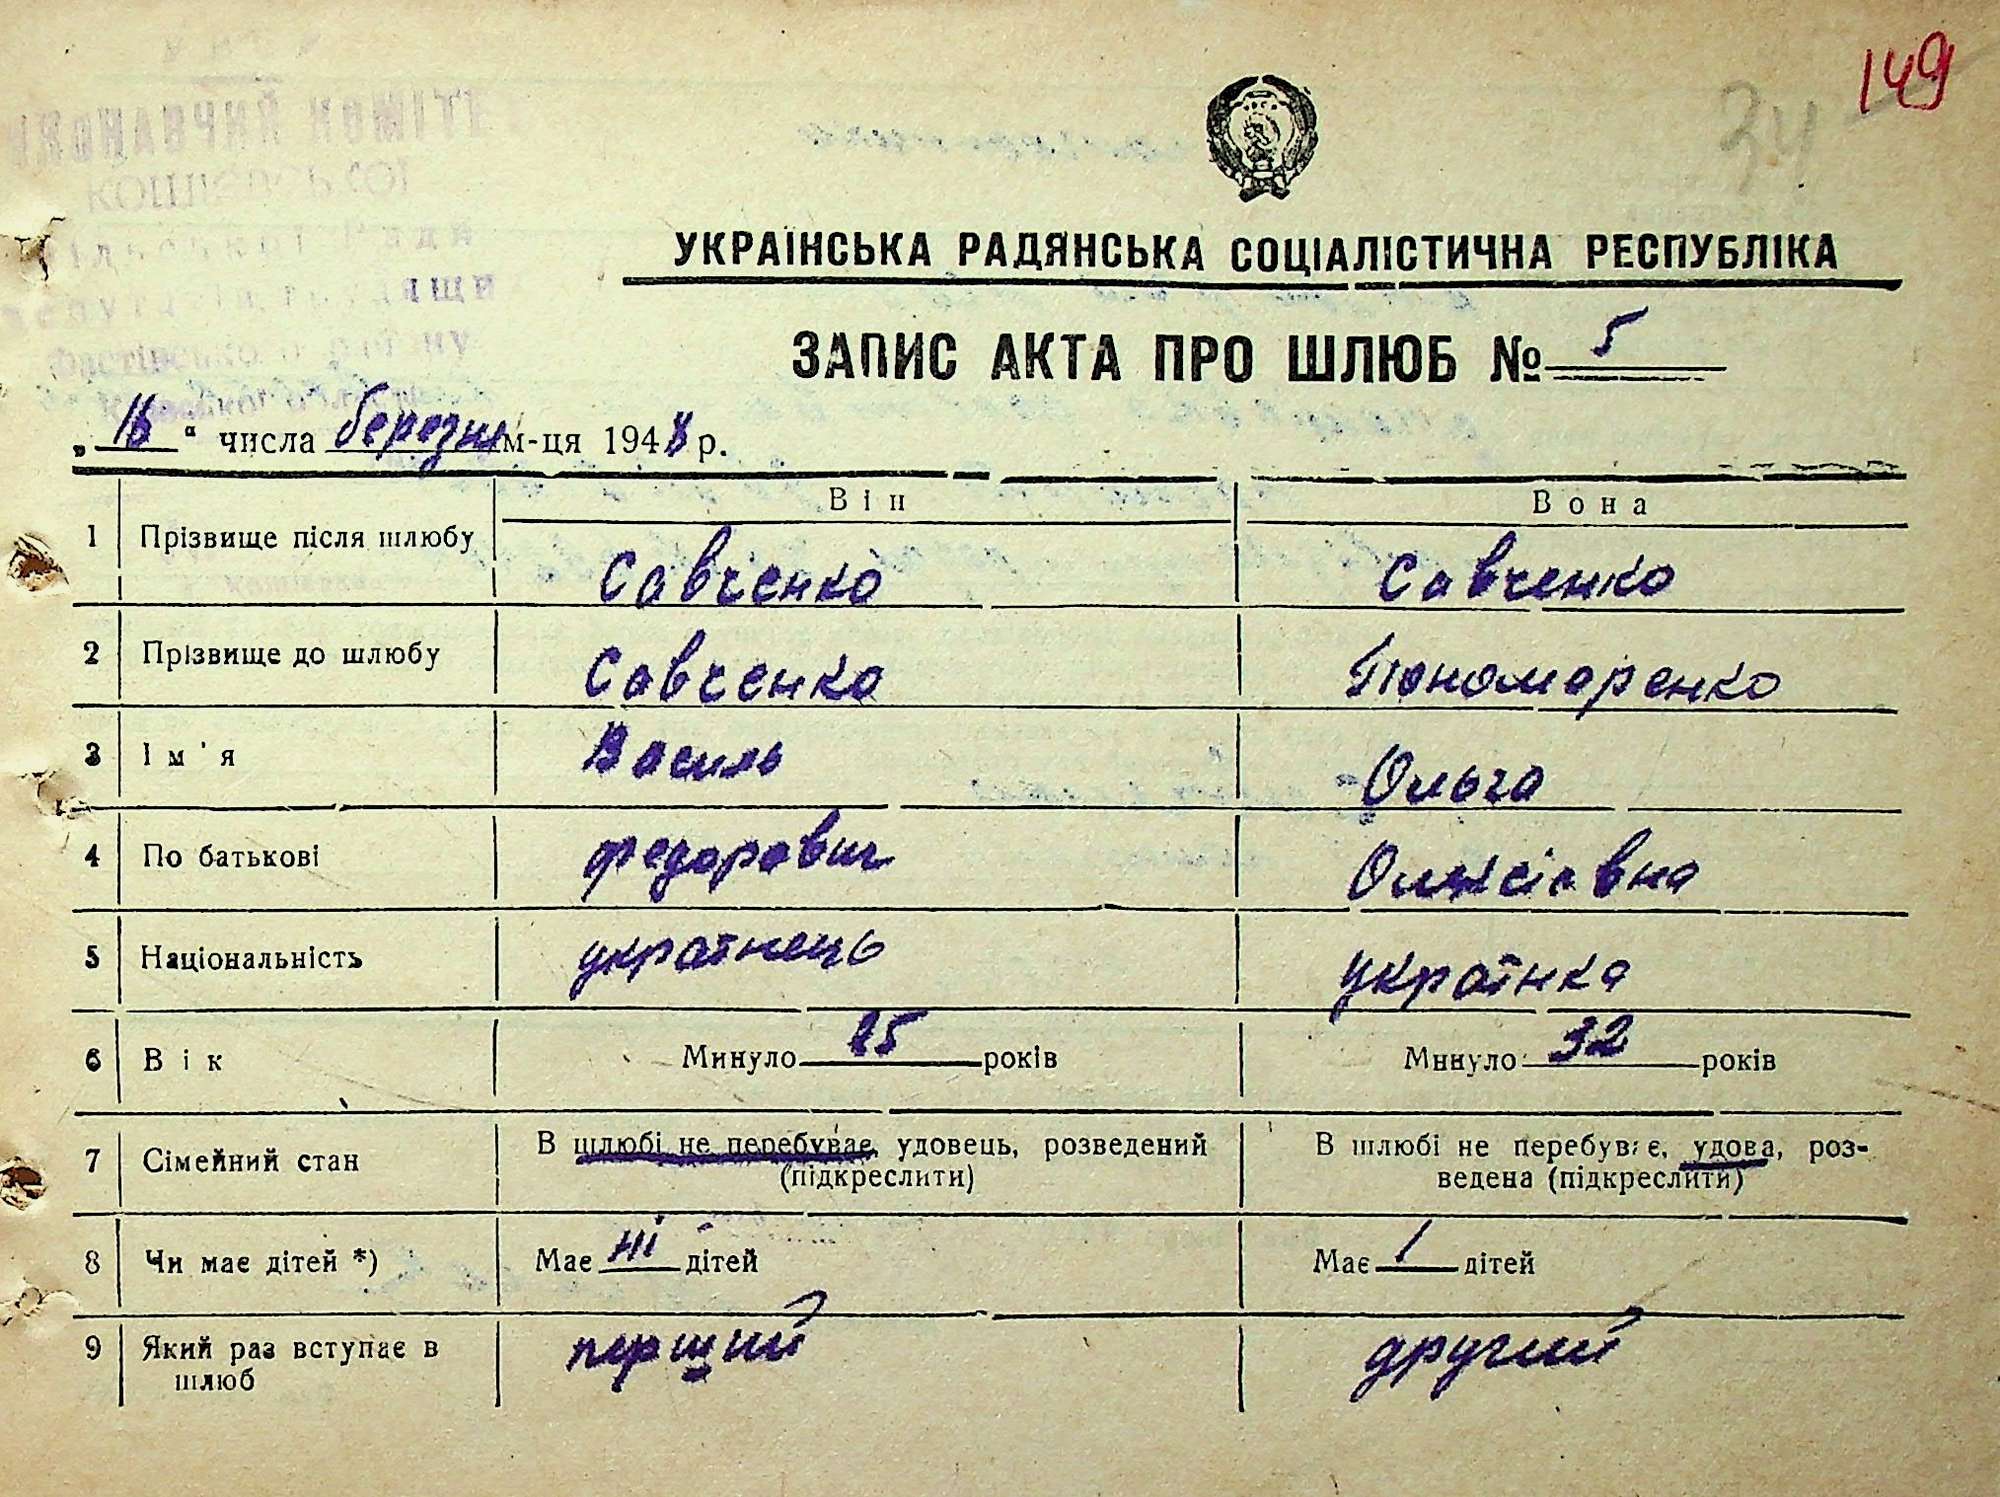 149
34
ВИКОНАВЧИЙ КОМІТЕТ
КОЩІЇВСЬКОЇ
сільської Ради
депутатів трудящих
Фастівського району
Київської області
УКРАЇНСЬКА РАДЯНСЬКА СОЦІАЛІСТИЧНА РЕСПУБЛІКА
ЗАПИС АКТА ПРО ШЛЮБ № 5
„16“ числа березня м-ця 1948 р.
Він Вона
1 Прізвище після шлюбу Савченко Савченко
2 Прізвище до шлюбу Савченко Пономаренко
3 Ім'я Василь Ольга
4 По батькові Федорович Олексієвна
5 Національність українець українка
6 Вік Минуло 25 років Минуло 32 років
7 Сімейний стан В шлюбі не перебуває, удовець, розведений В шлюбі не перебуває, удова, роз-
(підкреслити) ведена (підкреслити)
8 Чи має дітей *) Має ні дітей Має 1 дітей
9 Який раз вступає в перший другий
шлюб